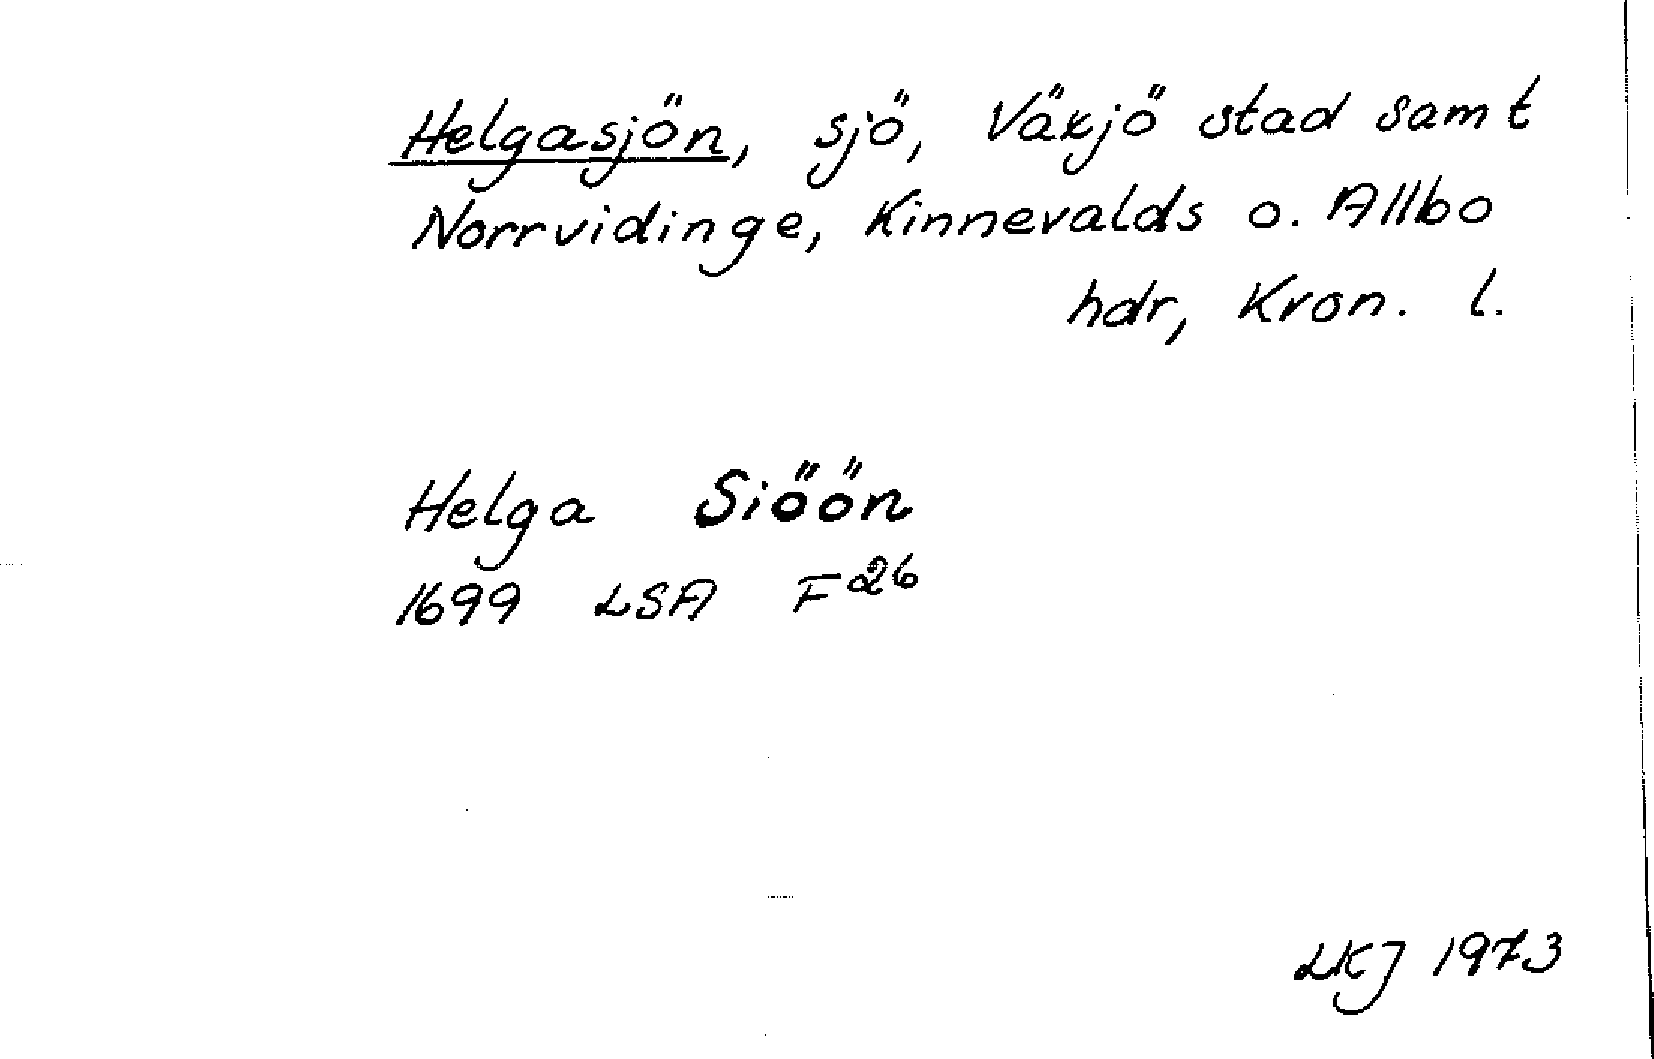 Helgasjön, sjö, Växjö stad samt
Norrvidinge, Kinnevalds o. Allbo
hdr, Kron. l.
Helga Siöön
1699 LSA F26
LKJ 1973